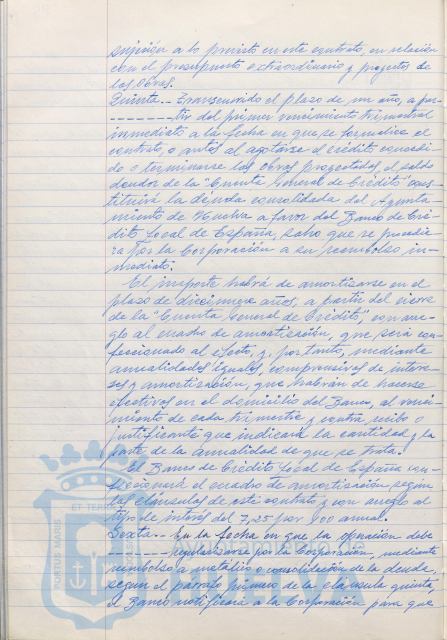 sujeción a lo previsto en este contrato, en relación
con el presupuesto extraordinario y proyectos de
las obras.
Quinta.-- Transcurrido el plazo de un año, a par-
--------tir del primer vencimiento trimestral
inmediato a la fecha en que se formalice el
contrato, o antes al agotarse el crédito concedi-
do o terminarse las obras proyectadas, el saldo
deudor de la "Cuenta General de Crédito" cons-
tituirá la deuda consolidada del Ayunta-
miento de Huelva a favor del Banco de Cré-
dito Local de España, salvo que se procedie-
ra por la Corporación a su reembolso in-
mediato.
El importe habrá de amortizarse en el
plazo de diecinueve años, a partir del cierre
de la "Cuenta General de Crédito", con arre-
glo al cuadro de amortización, que será con-
feccionado al efecto, y, por tanto, mediante
anualidades iguales, comprensivas de intere-
ses y amortización, que habrán de hacerse
efectivas en el domicilio del Banco, al venci-
miento de cada trimestre y contra recibo o
justificante que indicará la cantidad y la
parte de la anualidad de que se trata.
El Banco de Crédito Local de España con-
feccionará el cuadro de amortización según
las cláusulas de este contrato y con arreglo al
tipo de interés del 7,25 por 100 anual.
Sexta.-- En la fecha en que la operación debe
--------regularizarse por la Corporación, mediante
reembolso a metálico o consolidación de la deuda,
según el párrafo primero de la cláusula quinta,
el Banco notificará a la Corporación para que
PORTUS MARIS
ET TERRE
HUELVA